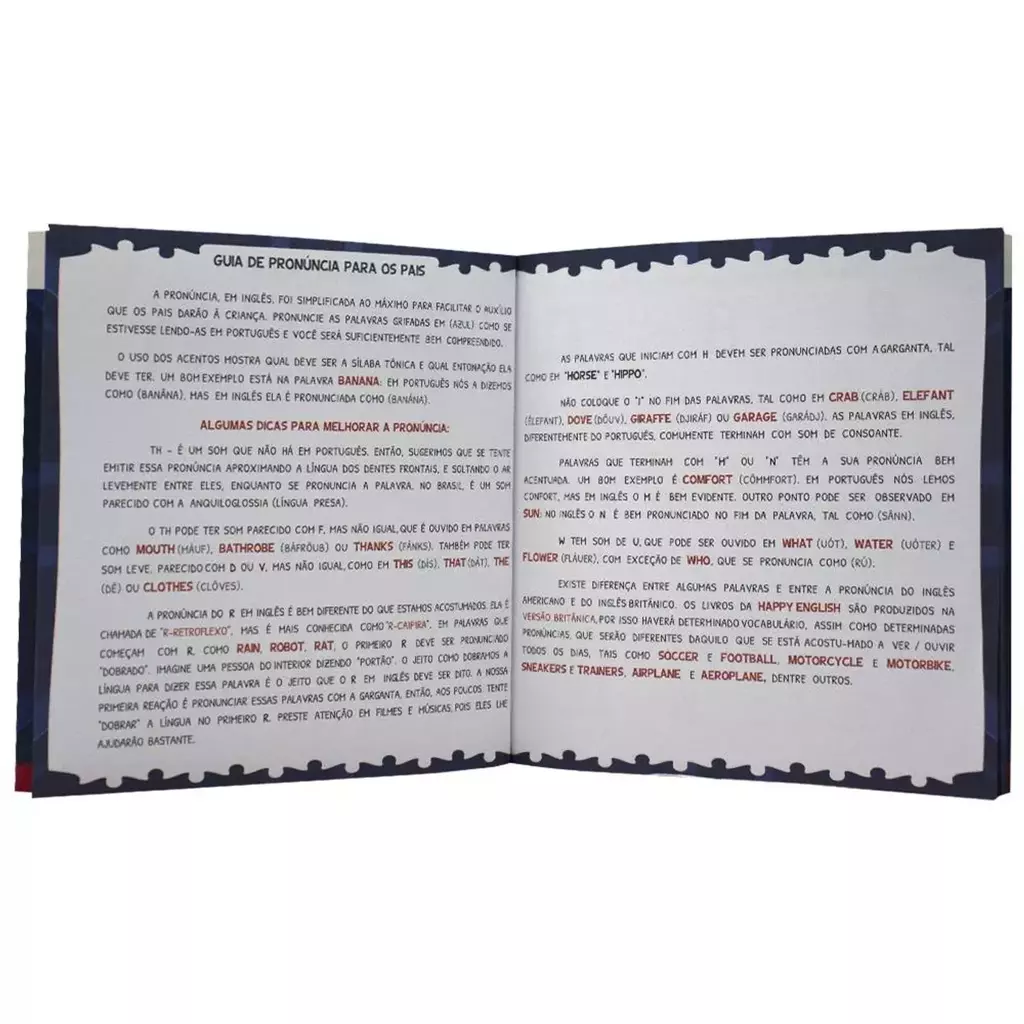 GUIA DE PRONÚNCIA PARA OS PAIS
A PRONÚNCIA, EM INGLÊS, FOI SIMPLIFICADA AO MÁXIMO PARA FACILITAR O AUXÍLIO
QUE OS PAIS DARÃO À CRIANÇA. PRONUNCIE AS PALAVRAS GRIFADAS EM (AZUL) COMO SE
ESTIVESSE LENDO-AS EM PORTUGUÊS E VOCÊ SERÁ SUFICIENTEMENTE BEM COMPREENDIDO.
O USO DOS ACENTOS MOSTRA QUAL DEVE SER A SÍLABA TÔNICA E QUAL ENTONAÇÃO ELA
DEVE TER. UM BOM EXEMPLO ESTÁ NA PALAVRA BANANA: EM PORTUGUÊS NÓS A DIZEMOS
COMO (BANÂNA), MAS EM INGLÊS ELA É PRONUNCIADA COMO (BANÁNA).
ALGUMAS DICAS PARA MELHORAR A PRONÚNCIA:
TH - É UM SOM QUE NÃO HÁ EM PORTUGUÊS. ENTÃO, SUGERIMOS QUE SE TENTE
EMITIR ESSA PRONÚNCIA APROXIMANDO A LÍNGUA DOS DENTES FRONTAIS, E SOLTANDO O AR
LEVEMENTE ENTRE ELES, ENQUANTO SE PRONUNCIA A PALAVRA. NO BRASIL, É UM SOM
PARECIDO COM A ANQUILOGLOSSIA (LÍNGUA PRESA).
O TH PODE TER SOM PARECIDO COM F, MAS NÃO IGUAL, QUE É OUVIDO EM PALAVRAS
COMO MOUTH (MÁUF), BATHROBE (BÁFRÔUB) OU THANKS (FÂNKS). TAMBÉM PODE TER
SOM LEVE, PARECIDO COM D OU V, MAS NÃO IGUAL, COMO EM THIS (DÍS), THAT (DÁT), THE
(DÊ) OU CLOTHES (CLÔVES).
A PRONÚNCIA DO R EM INGLÊS É BEM DIFERENTE DO QUE ESTAMOS ACOSTUMADOS. ELA É
CHAMADA DE "R-RETROFLEXO", MAS É MAIS CONHECIDA COMO "R-CAIPIRA". EM PALAVRAS QUE
COMEÇAM COM R, COMO RAIN, ROBOT, RAT, O PRIMEIRO R DEVE SER PRONUNCIADO
"DOBRADO". IMAGINE UMA PESSOA DO INTERIOR DIZENDO "PORTÃO". O JEITO COMO DOBRAMOS A
LÍNGUA PARA DIZER ESSA PALAVRA É O JEITO QUE O R EM INGLÊS DEVE SER DITO. A NOSSA
PRIMEIRA REAÇÃO É PRONUNCIAR ESSAS PALAVRAS COM A GARGANTA. ENTÃO, AOS POUCOS, TENTE
"DOBRAR" A LÍNGUA NO PRIMEIRO R. PRESTE ATENÇÃO EM FILMES E MÚSICAS, POIS ELES LHE
AJUDARÃO BASTANTE.
AS PALAVRAS QUE INICIAM COM H DEVEM SER PRONUNCIADAS COM A GARGANTA, TAL
COMO EM "HORSE" E "HIPPO".
NÃO COLOQUE O "I" NO FIM DAS PALAVRAS, TAL COMO EM CRAB (CRÁB), ELEFANT
(ÉLEFANT), DOVE (DÔUV), GIRAFFE (DJIRÁF) OU GARAGE (GARÁDJ). AS PALAVRAS EM INGLÊS,
DIFERENTEMENTE DO PORTUGUÊS, COMUMENTE TERMINAM COM SOM DE CONSOANTE.
PALAVRAS QUE TERMINAM COM "M" OU "N" TÊM A SUA PRONÚNCIA BEM
ACENTUADA. UM BOM EXEMPLO É COMFORT (CÔMMFORT). EM PORTUGUÊS NÓS LEMOS
CONFORT, MAS EM INGLÊS O M É BEM EVIDENTE. OUTRO PONTO PODE SER OBSERVADO EM
SUN: NO INGLÊS O N É BEM PRONUNCIADO NO FIM DA PALAVRA, TAL COMO (SÂNN).
W TEM SOM DE U, QUE PODE SER OUVIDO EM WHAT (UÓT), WATER (UÓTER) E
FLOWER (FLÁUER), COM EXCEÇÃO DE WHO, QUE SE PRONUNCIA COMO (RÚ).
EXISTE DIFERENÇA ENTRE ALGUMAS PALAVRAS E ENTRE A PRONÚNCIA DO INGLÊS
AMERICANO E DO INGLÊS BRITÂNICO. OS LIVROS DA HAPPY ENGLISH SÃO PRODUZIDOS NA
VERSÃO BRITÂNICA, POR ISSO HAVERÁ DETERMINADO VOCABULÁRIO, ASSIM COMO DETERMINADAS
PRONÚNCIAS, QUE SERÃO DIFERENTES DAQUILO QUE SE ESTÁ ACOSTU-MADO A VER / OUVIR
TODOS OS DIAS, TAIS COMO SOCCER E FOOTBALL, MOTORCYCLE E MOTORBIKE,
SNEAKERS E TRAINERS, AIRPLANE E AEROPLANE, DENTRE OUTROS.